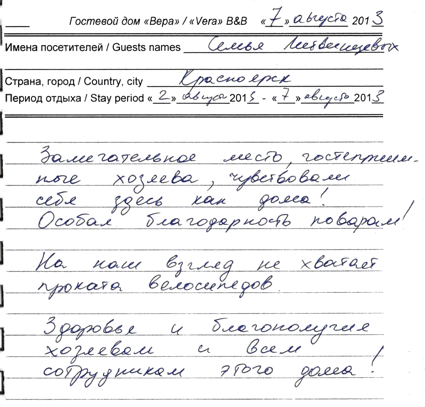 Гостевой дом «Вера» / «Vera» B&B «7» августа 2013
Имена посетителей / Guests names Семья
Страна, город / Country, city Красноярск
Период отдыха / Stay period «2» августа 2013 - «7» августа 2013
Замечательное место, гостеприим-
ные хозяева, чувствовали
себя здесь как дома!
Особая благодарность поварам!
На наш взгляд не хватает
проката велосипедов.
Здоровье и благополучия
хозяевам и всем
сотрудникам этого дома!